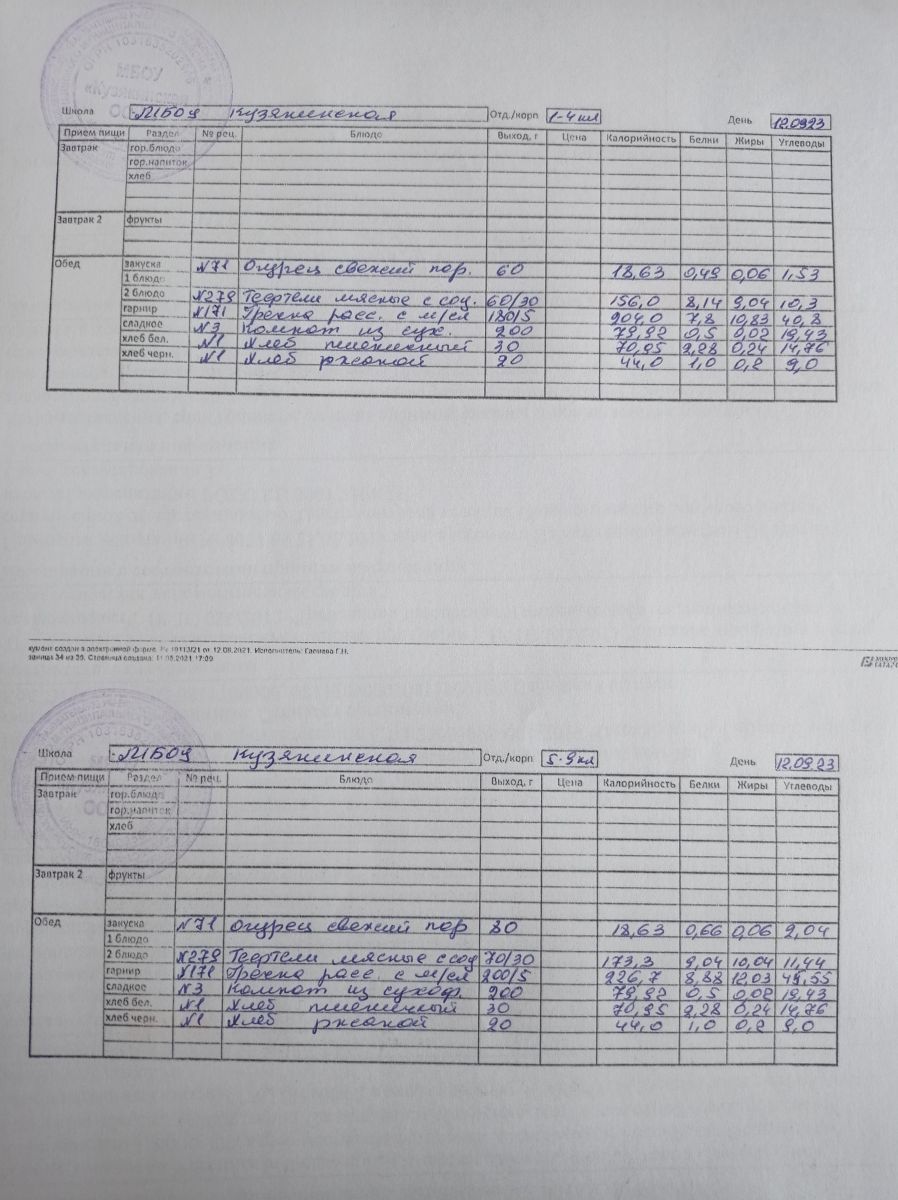 МБОУ
«Кузякинская
Школа МБОУ Кузякинская Отд./корп 1-4 кл День 12.09.23
Прием пищи Раздел № рец. Блюдо Выход, г Цена Калорийность Белки Жиры Углеводы
Завтрак гор.блюдо
гор.напиток
хлеб
Завтрак 2 фрукты
Обед закуска №71 Огурец свежий пор. 60 18,63 0,49 0,06 1,53
1 блюдо
2 блюдо №279 Тефтели мясные с соу. 60/30 156,0 8,14 9,04 10,3
гарнир №171 Гречка расс. с м/сл 180/5 204,0 7,8 10,83 40,8
сладкое №3 Компот из сух. 200 79,92 0,5 0,02 19,43
хлеб бел. №1 Хлеб пшеничный 30 70,95 2,28 0,24 14,76
хлеб черн. №1 Хлеб ржаной 20 44,0 1,0 0,2 9,0
кумент создан в электронной форме. от 12.08.2021. Исполнитель:
Страница создана: 2021 17:09
Школа МБОУ Кузякинская Отд./корп 5-9 кл День 12.09.23
Прием пищи Раздел № рец. Блюдо Выход, г Цена Калорийность Белки Жиры Углеводы
Завтрак гор.блюдо
гор.напиток
хлеб
Завтрак 2 фрукты
Обед закуска №71 Огурец свежий пор 80 18,63 0,66 0,06 2,04
1 блюдо
2 блюдо №279 Тефтели мясные с соу 70/30 173,3 9,04 10,04 11,44
гарнир №171 Гречка расс. с м/сл 200/5 226,7 8,88 12,03 45,55
сладкое №3 Компот из сухоф. 200 79,92 0,5 0,02 19,43
хлеб бел. №1 Хлеб пшеничный 30 70,95 2,28 0,24 14,76
хлеб черн. №1 Хлеб ржаной 20 44,0 1,0 0,2 9,0